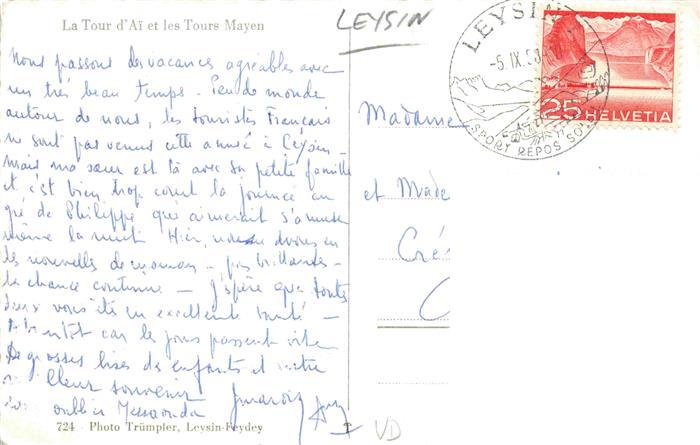 La Tour d'Aï et les Tours Mayen
LEYSIN
LEYSIN
-5. IX. 5
SPORT REPOS SO
25 HELVETIA
Nous passons des vacances agréables avec
un très beau temps - Peu de monde
autour de nous, les touristes Français
ne sont pas venus cette année à Leysin -
Mais ma sœur est là avec sa petite famille
et c'est bien trop court la journée au
gré de Philippe qui aimerait s'amuser
même la nuit. Hier, nous avons eu
des nouvelles de maman - pas brillantes -
la chance continue - J'espère que toutes
deux vous êtes en excellente santé -
A bientôt car les jours passent vite
De grosses bises des enfants et notre
meilleur souvenir
oublier
Madame
et Madame
Cré
724 - Photo Trümpler, Leysin-Feydey
VD